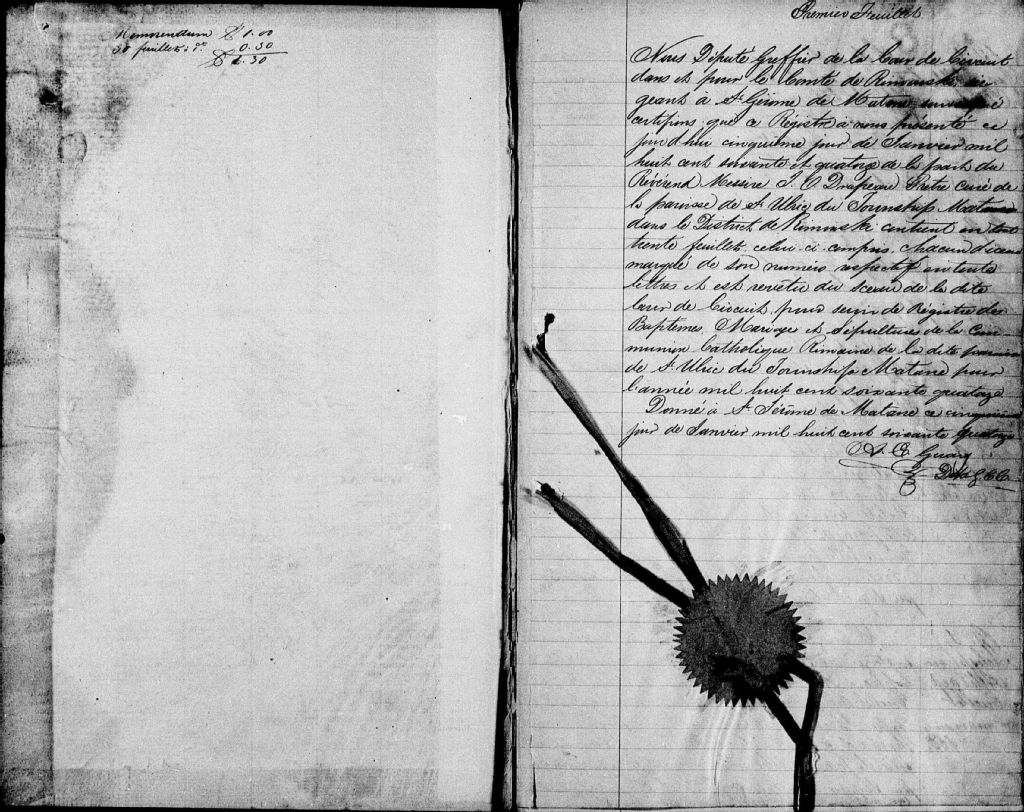 Memorendum $ 1.00
30 feuillets do 0.30
$ 1.30
Premier Feuillet
Nous Député Greffier de la Cour de Circuit
dans et pour le Comté de Rimouski, sié
geant à St Gérome de Matane soussigné
certifions que ce Régistre à nous présenté ce
jour d'hui cinquième jour de Janvier mil
huit cent soixante et quatorze de la part du
Révérend Messire J. C Drapeau Prêtre curé de
la paroisse de St Ulric du Township Matane
dans le District de Rimouski contient en tout
trente feuillets celui-ci compris chacun d'iceux
marqué de son numéro respectif en toute
lettres et est revêtu du sceau de la dite
Cour de Circuit, pour servir de Régistre des
Baptemes, Mariage et sépultures de la Com
munion Catholique Romaine de la dite paroisse
de St Ulric du Township Matane pour
l'année mil huit cent soixante quatorze
Donné à St Jérôme de Matane ce cinquième
jour de Janvier mil huit cent soixante quatorze
Dép G.C.C.